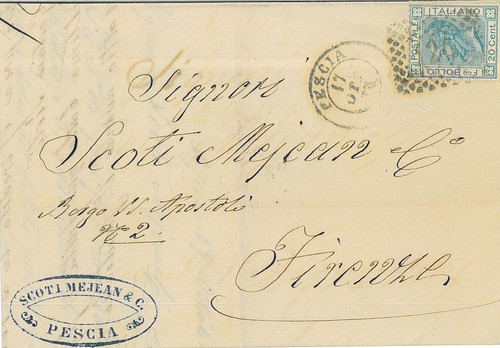 POSTALE ITALIANO
20 Cent. Fco BOLLO
PESCIA
17
Signori
Scoti Mejean Co
Borgo SS. Apostoli
No 2.
Firenze
SCOTI MEJEAN & C.
PESCIA